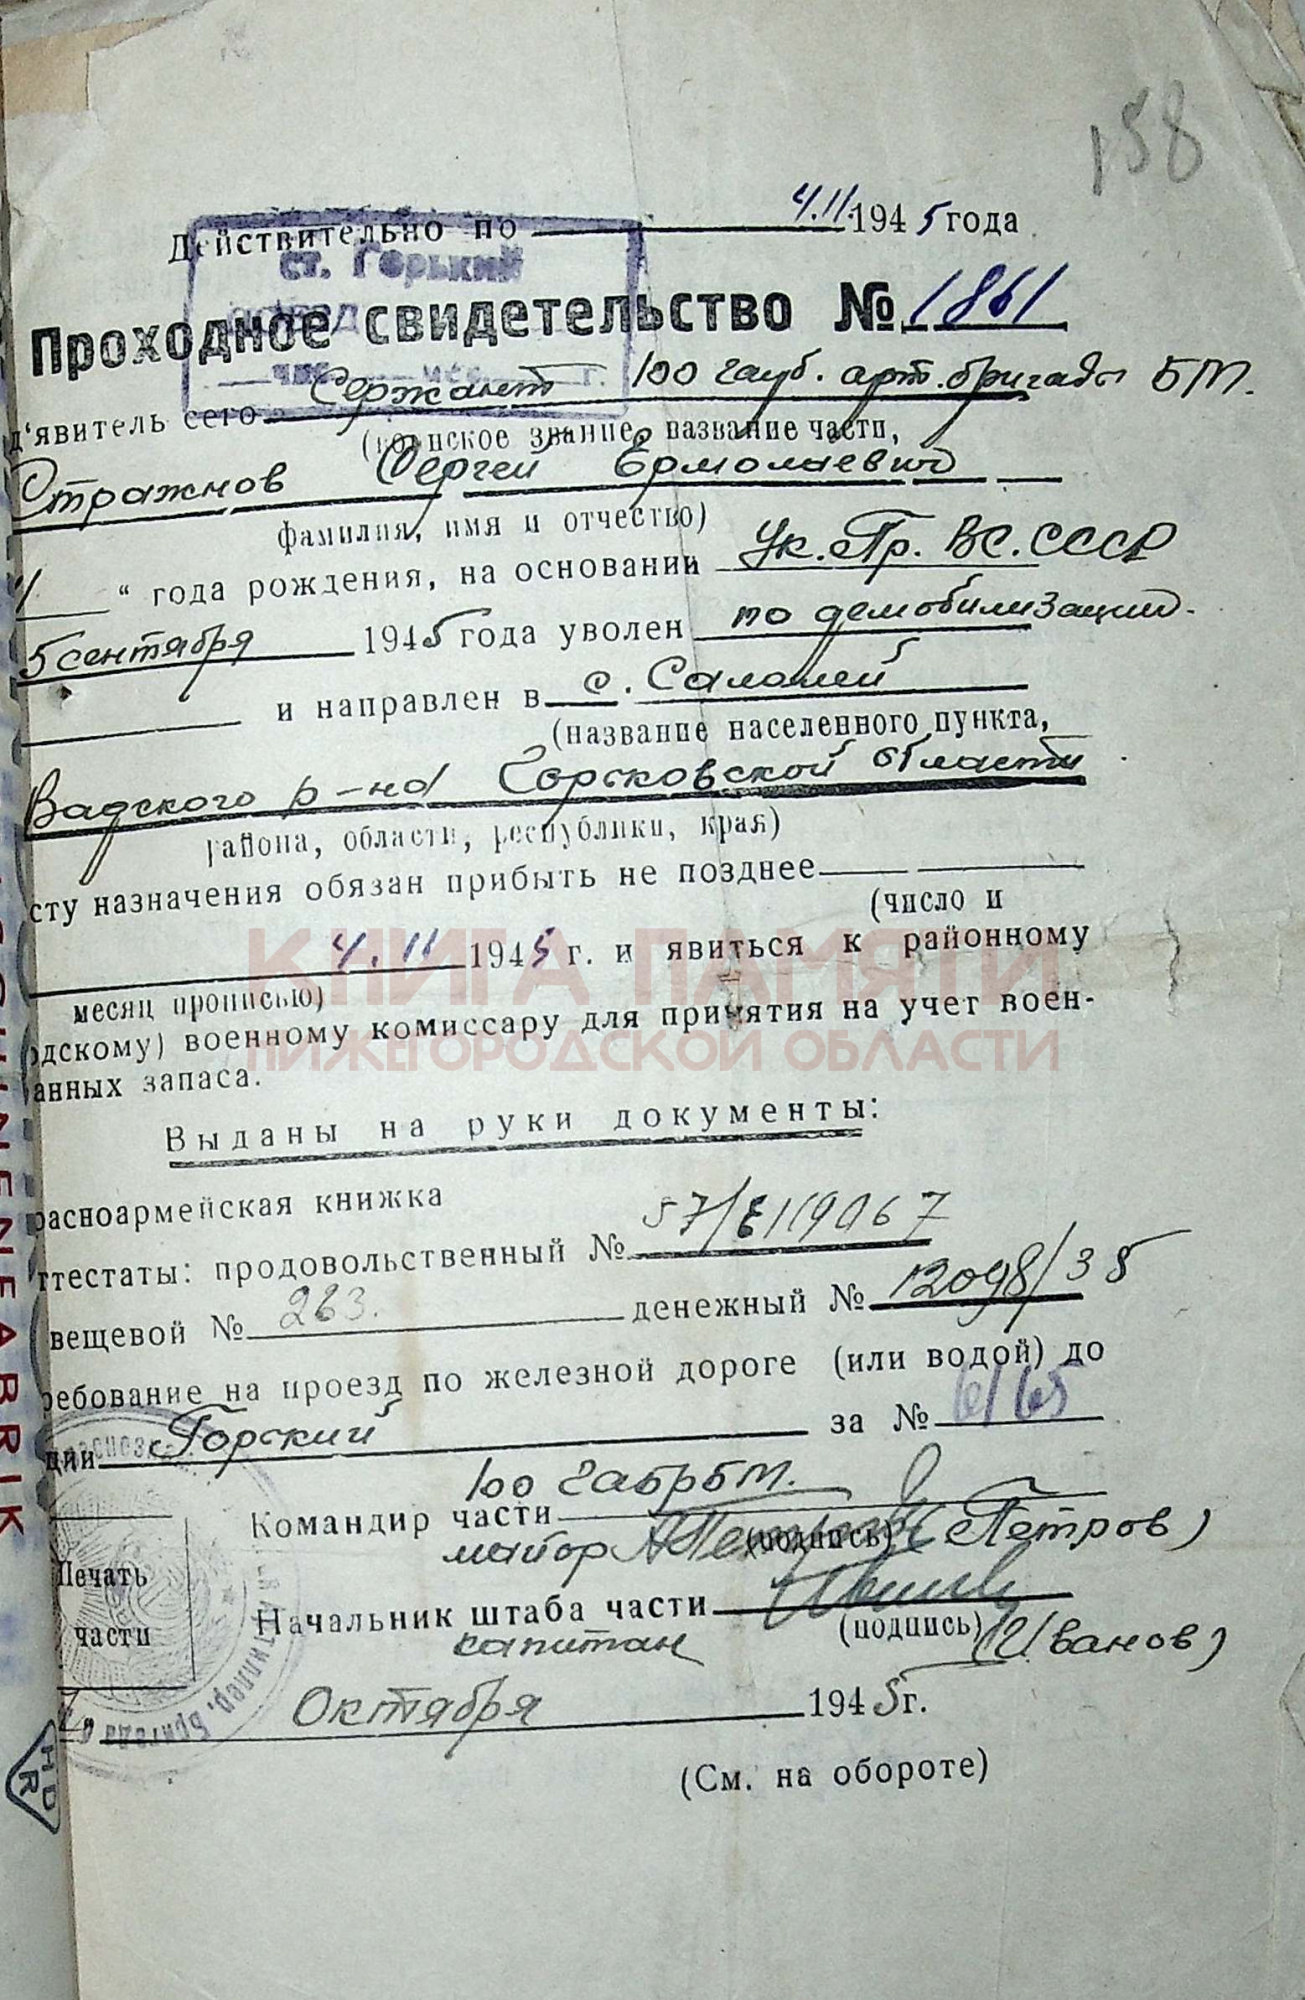 158
Действительно по 4.11.1945 года
ст. Горький
Проходное свидетельство № 1861
д'явитель сего Сержант 100 гауб. арт. бригады БМ.
(воинское звание, название части,
Стражнов Сергей Ермолаевич
фамилия, имя и отчество)
“ года рождения, на основании Ук. Пр. ВС. СССР
5 сентября 1945 года уволен по демобилизации.
и направлен в с. Саламей
(название населенного пункта,
Вадского р-на Горьковской области
района, области, республики, края)
сту назначения обязан прибыть не позднее
(число и
4.11 1945 г. и явиться к районному
месяц прописью)
одскому) военному комиссару для принятия на учет воен-
анных запаса.
КНИГА ПАМЯТИ
НИЖЕГОРОДСКОЙ ОБЛАСТИ
Выданы на руки документы:
расноармейская книжка
ттестаты: продовольственный №
вещевой № 263. денежный № 12098/38
ребование на проезд по железной дороге (или водой) до
ции Горский за № 6/65
100 ГАБРБМ.
Командир части
майор (подпись) (Петров)
Начальник штаба части
капитан (подпись) (Иванов)
Печать
части
Октября 1945 г.
(См. на обороте)